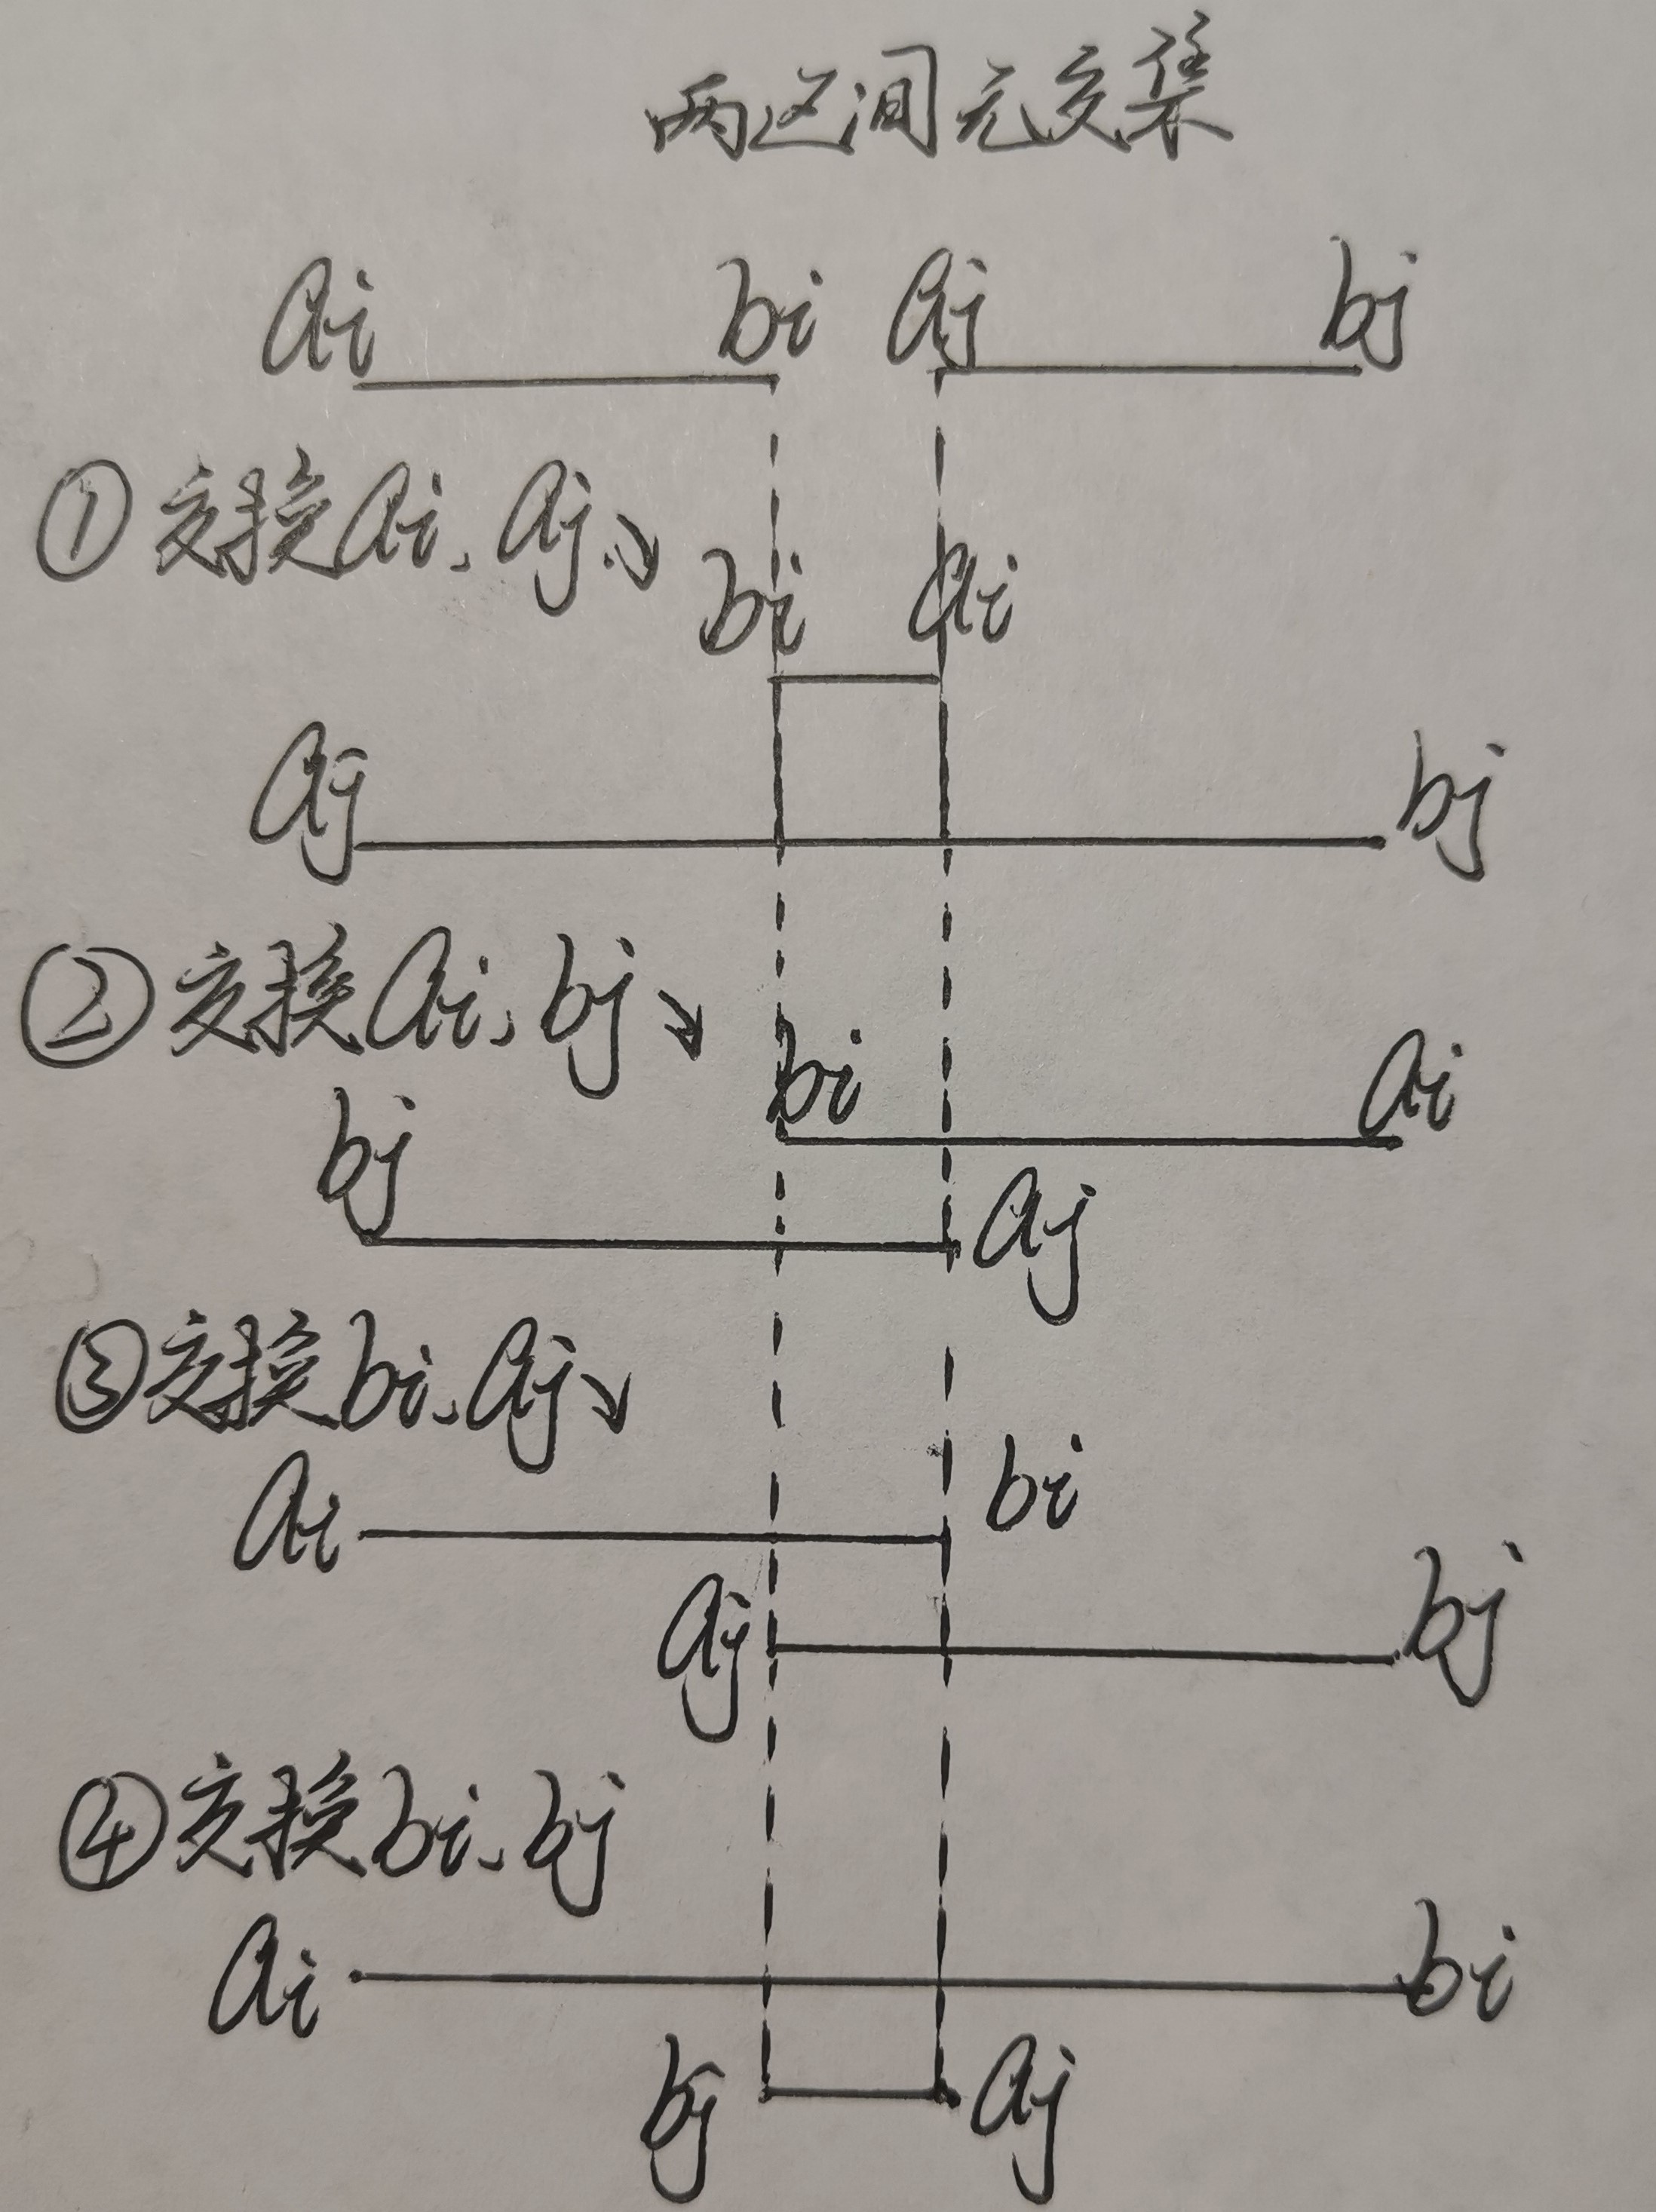 两区间无交集
ai bi aj bj
①交换ai、aj↘
bi ai
aj bj
②交换ai、bj↘
bi ai
bj aj
③交换bi、aj↘
ai bi
aj bj
④交换bi、bj
ai bi
bj aj